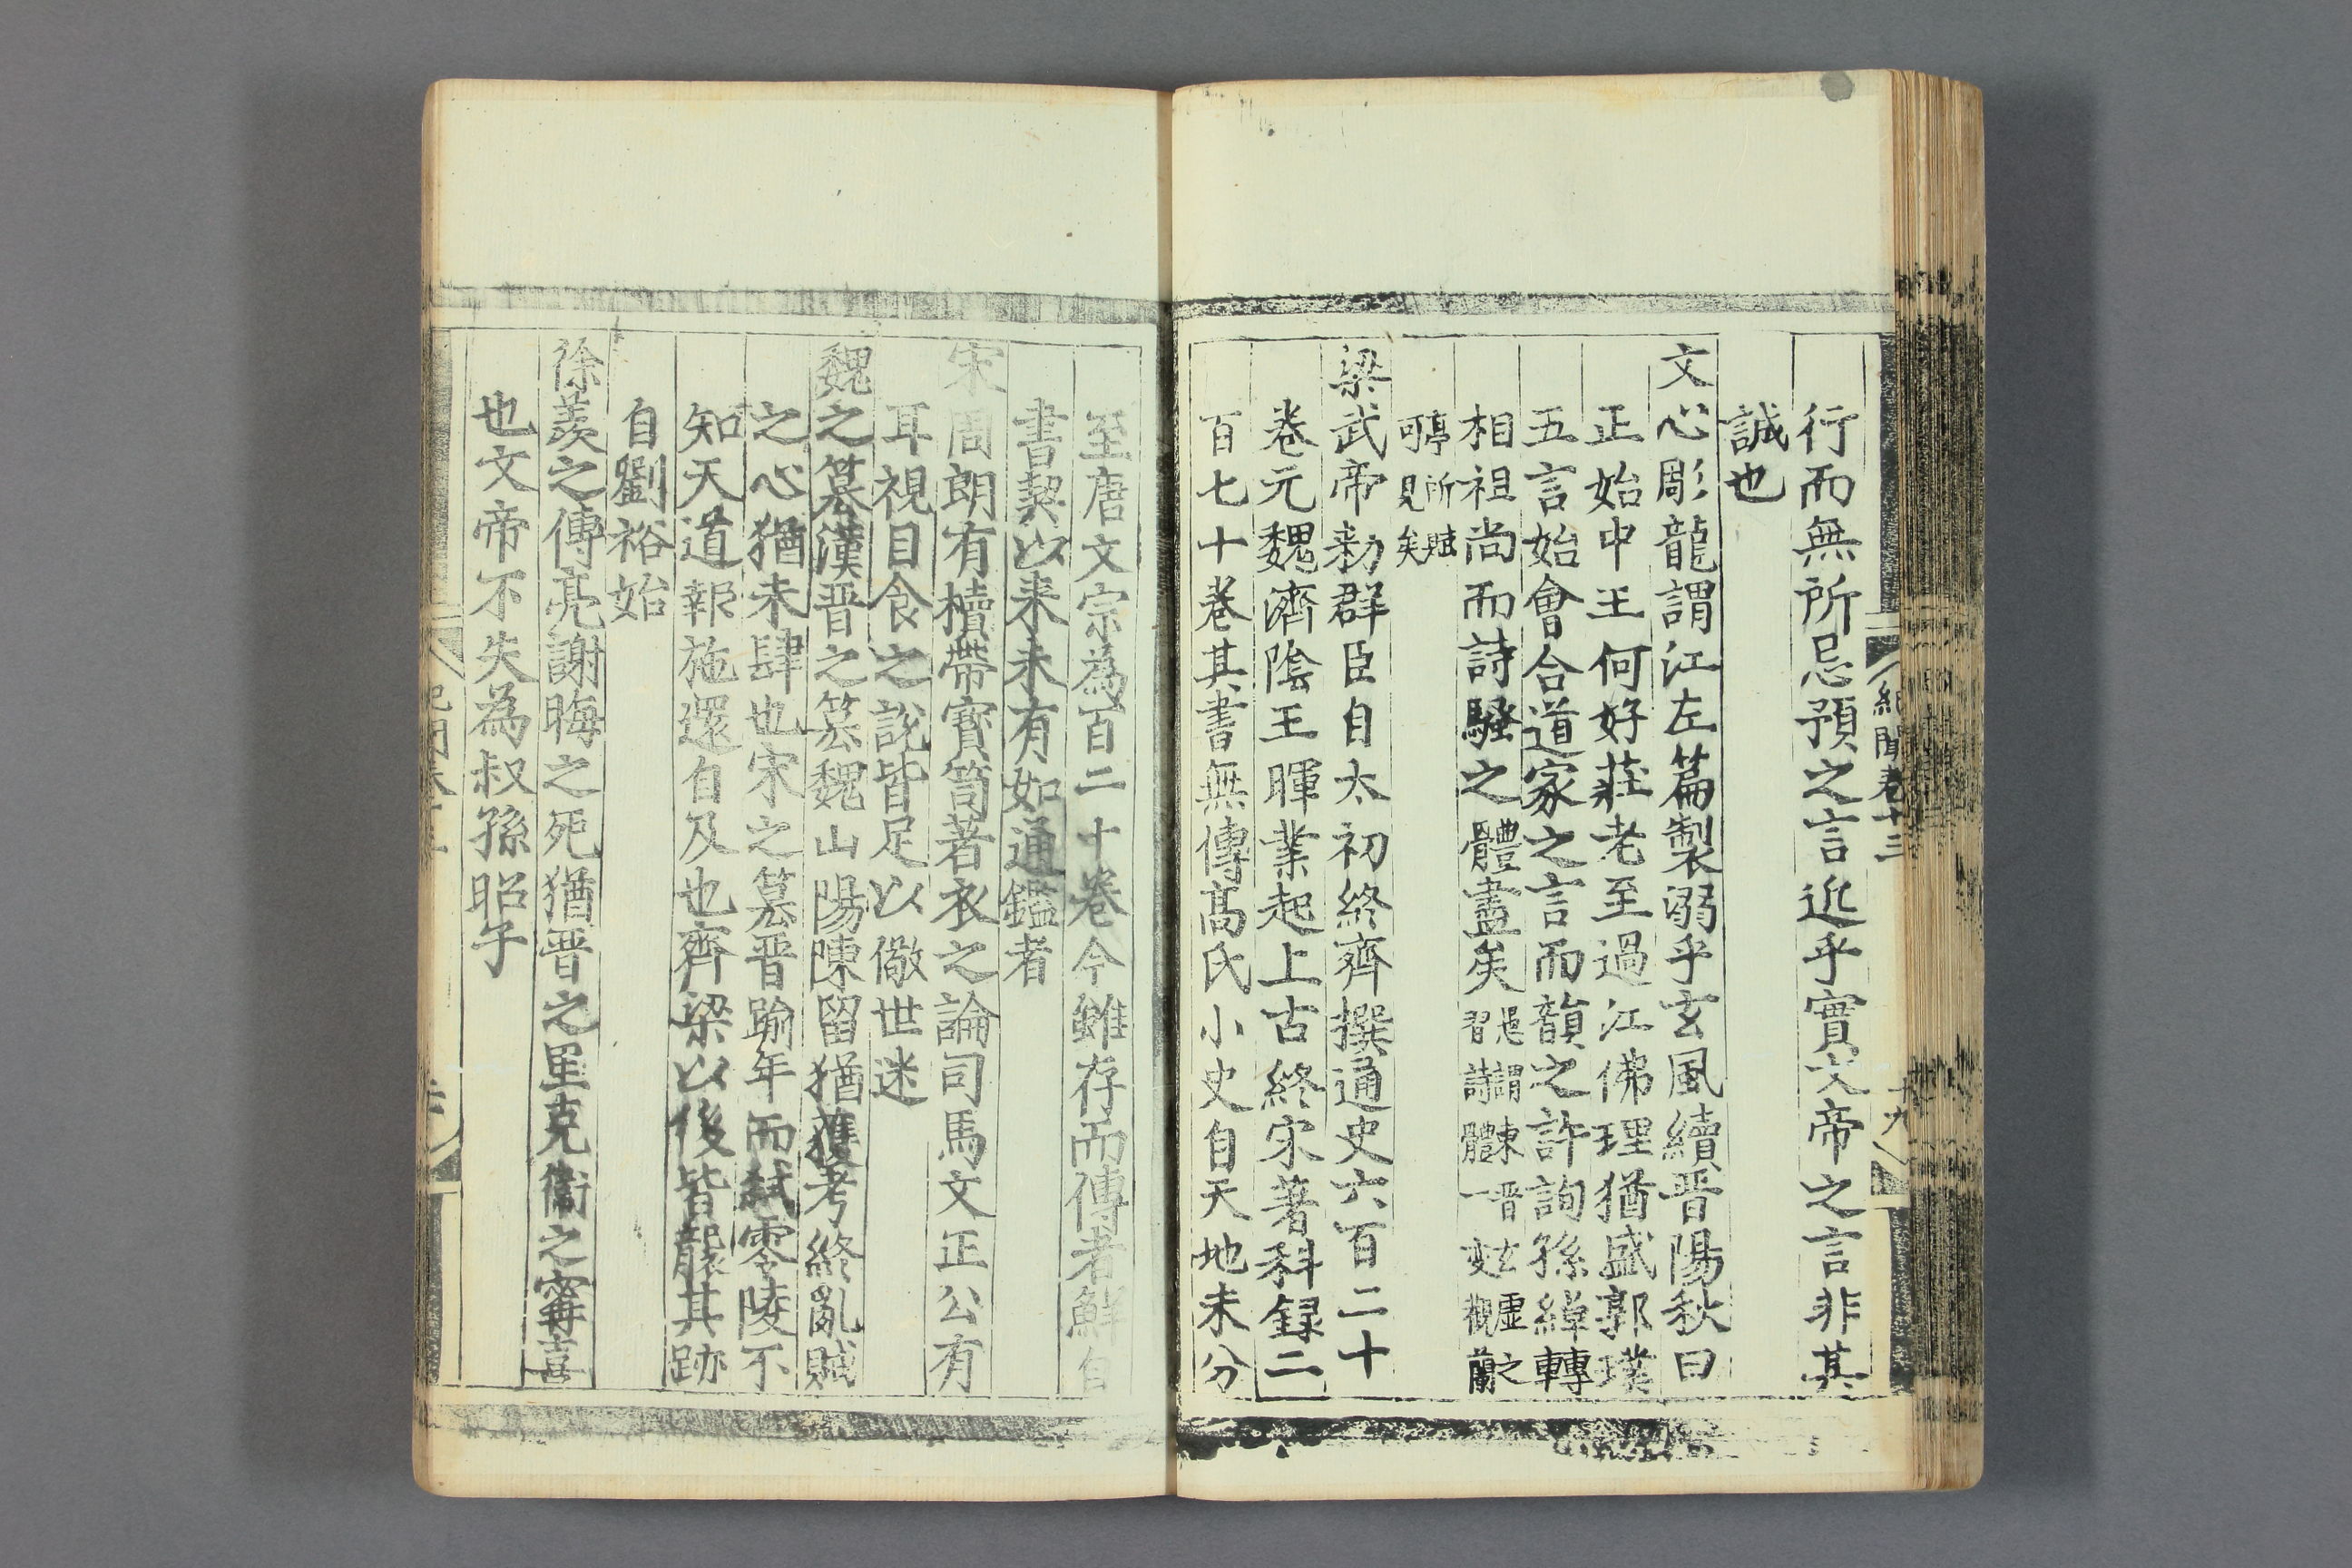 行而無所忌預之言近乎實文帝之言非其
誠也
文心彫龍謂江左篇製溺乎玄風續晋陽秋曰
正始中王何好莊老至過江佛理猶盛郭璞
五言始會合道家之言而韻之許詢孫綽轉
相祖尚而詩騷之體盡矣愚謂東晋玄虛之習詩體一变觀蘭
亭所賦可見矣
梁武帝勑群臣自太初終齊撰通史六百二十
卷元魏濟陰王暉業起上古終宋著科録二
百七十卷其書無傳髙氏小史自天地未分
至唐文宗為百二十卷今雖存而傳者鮮自
書契以来未有如通鑑者
宋周朗有櫝帶寳笥著衣之論司馬文正公有
耳視目食之說皆足以儆世迷
魏之篡漢晋之篡魏山陽陳留猶獲考終亂賊
之心猶未肆也宋之篡晋踰年而弑零陵不
知天道報施還自及也齊梁以後皆襲其跡
自劉裕始
徐羨之傅亮謝晦之死猶晋之里克衞之寗喜
也文帝不失為叔孫昭子
紀聞卷十三
十九